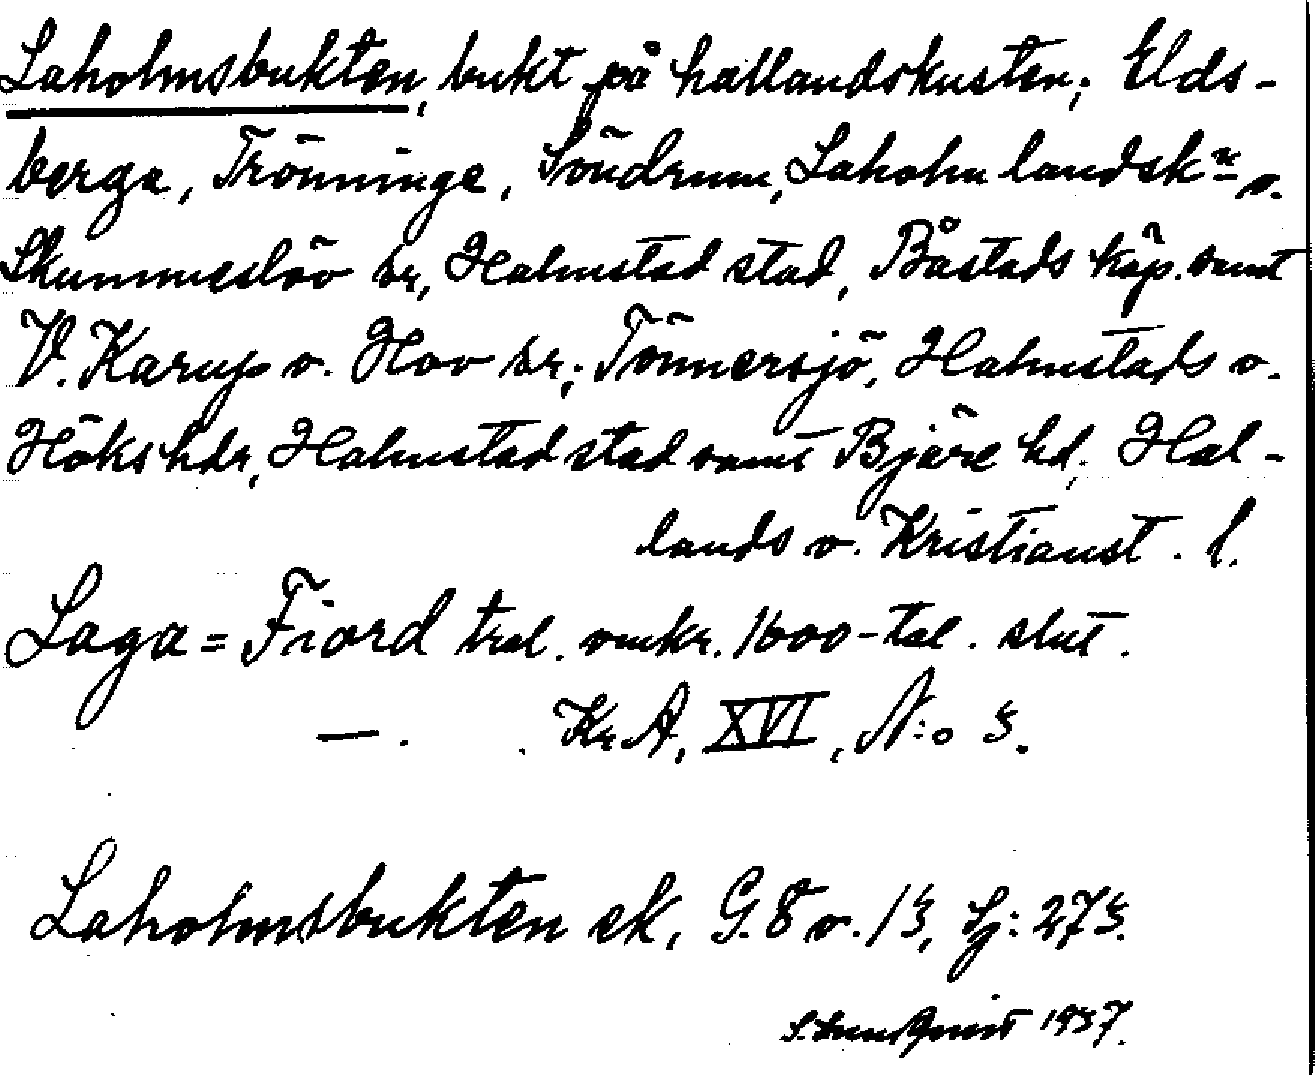 Laholmsbukten, bukt på hallandskusten; Elds-
berga, Trönninge, Söndrum, Laholm landsk:n o.
Skummeslöv sr, Halmstad stad, Båstads köp. samt
V. Karup o. Hov sr; Tönnersjö, Halmstads o.
Höks hdr, Halmstad stad samt Bjäre hd, Hal-
lands o. Kristianst. l.
Laga = Fiord trol. omkr. 1600-tal. slut.
—. KrA, XVI, N:o 5.
Laholmsbukten ek, G. 8 o. 15, Hj: 275.
S. Lundquist 1937.